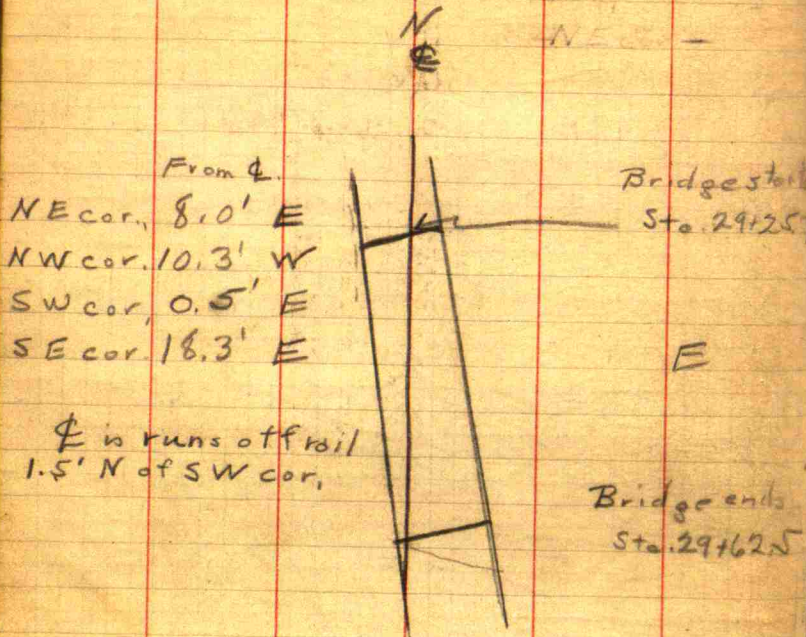 N
℄
From ℄.
NE cor., 8.0' E
NW cor. 10.3' W
SW cor, 0.5' E
SE cor. 18.3' E
℄ is runs off rail
1.5' N of SW cor.
Bridge
Sta. 29+25
E
Bridge ends
Sta. 29+62.5